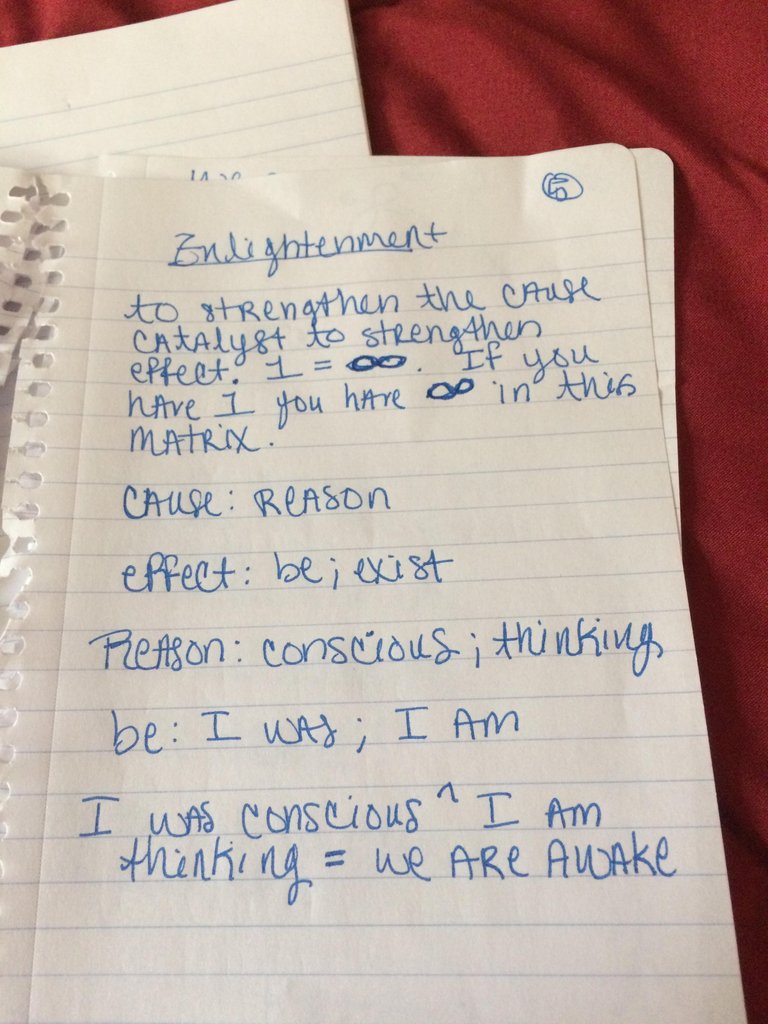 5
Enlightenment
to strengthen the cause
catalyst to strengthen
effect. 1 = ∞. If you
have 1 you have ∞ in this
matrix.
cause: Reason
effect: be; exist
Reason: conscious; thinking
be: I was; I Am
I was conscious ^ I Am
thinking = we are awake